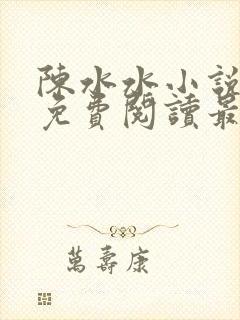 陳水水小說
免費閱讀最
萬壽康